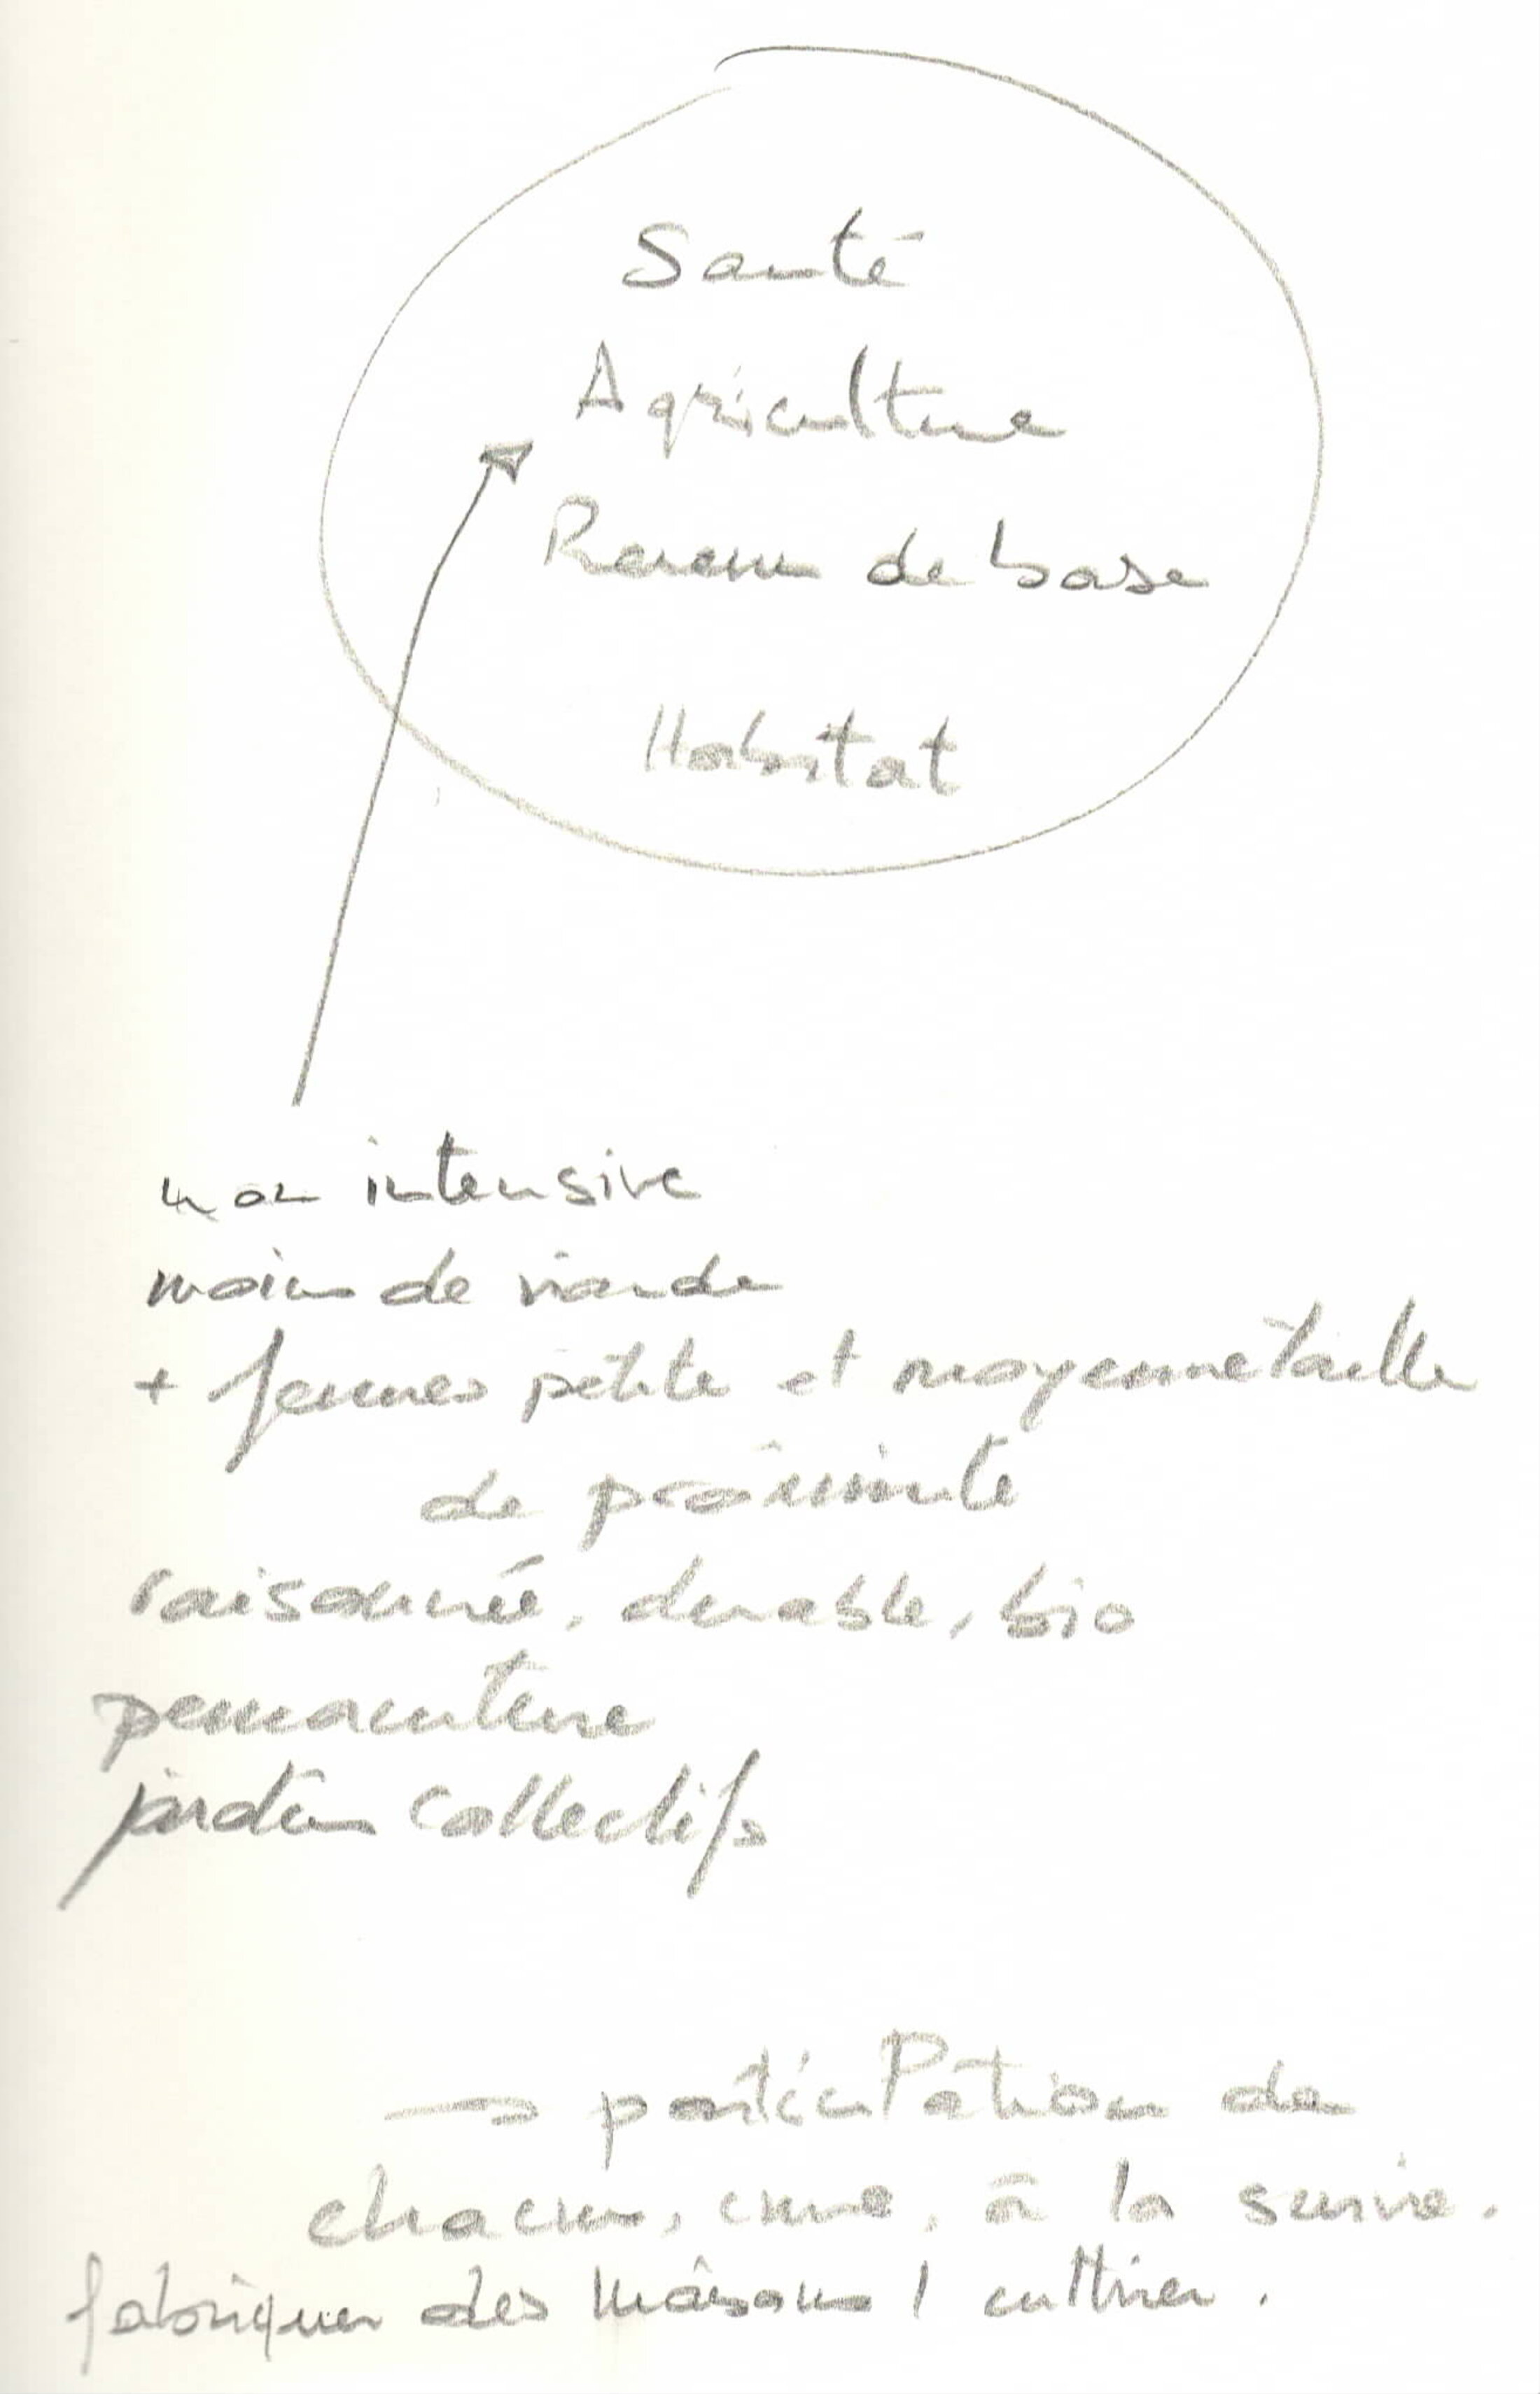 Santé
Agriculture
Revenu de base
Habitat
non intensive
moins de viande
+ fermes petite et moyenne taille
de proximité
raisonnée, durable, bio
permaculture
jardins collectifs
→ participation de
chacun, cune, à la survie.
fabriquer des maisons / cultiver.